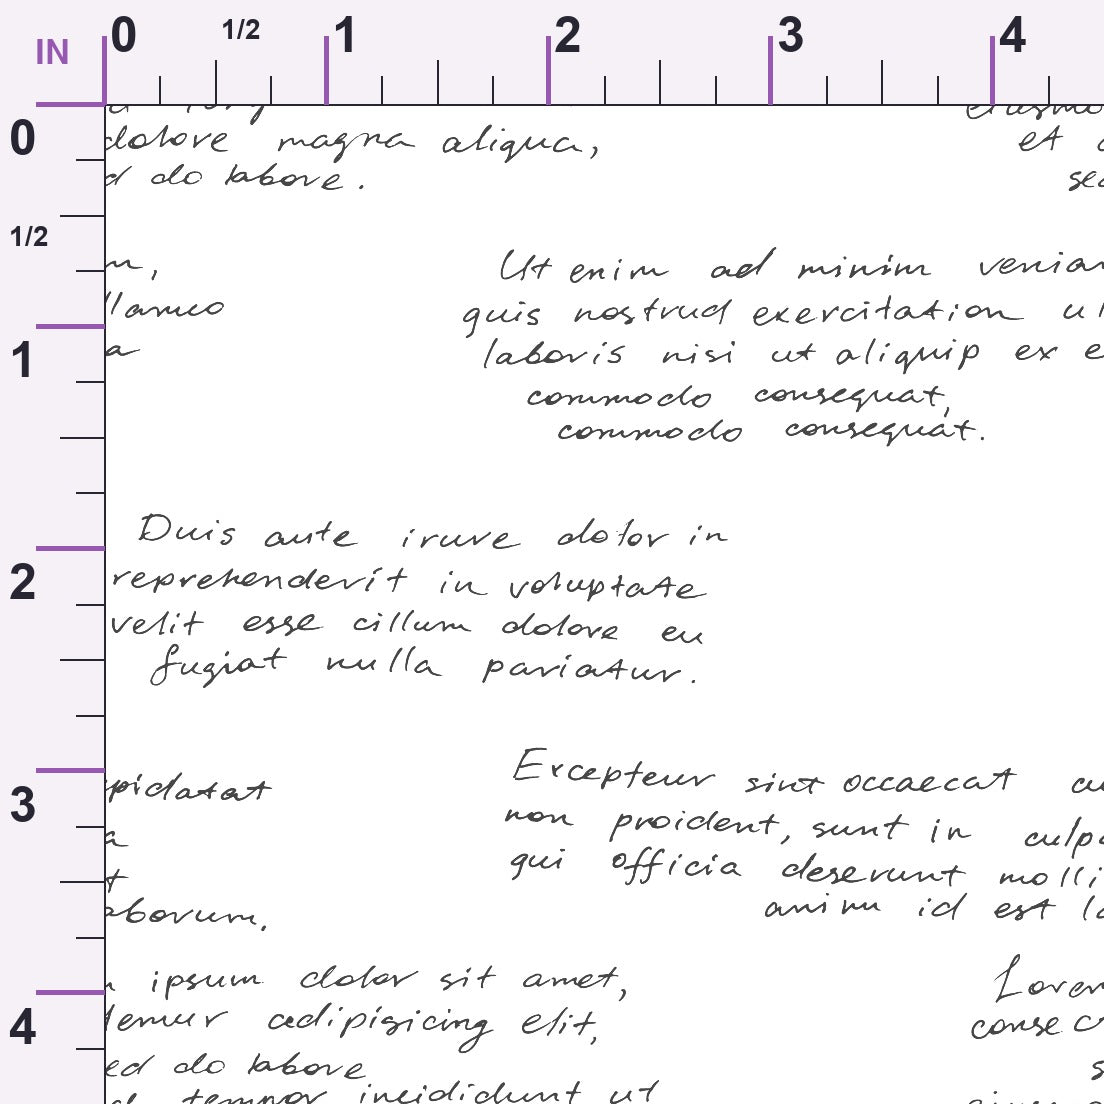 IN
0 1/2 1 2 3 4
0
1/2
1
2
3
4
dolore magna aliqua,
d do labore.
et
Ut enim ad minim
llamco
a
quis nostrud exercitation
laboris nisi ut aliquip ex
commodo consequat,
commodo consequat.
Duis aute irure dolor in
reprehenderit in voluptate
velit esse cillum dolore eu
fugiat nulla pariatur.
pidatat
aborum.
Excepteur sint occaecat
non proident, sunt in culp
qui officia deserunt molli
anim id est
ipsum dolor sit amet,
adipisicing elit,
ed do labore
tempor incididunt ut
Lorem